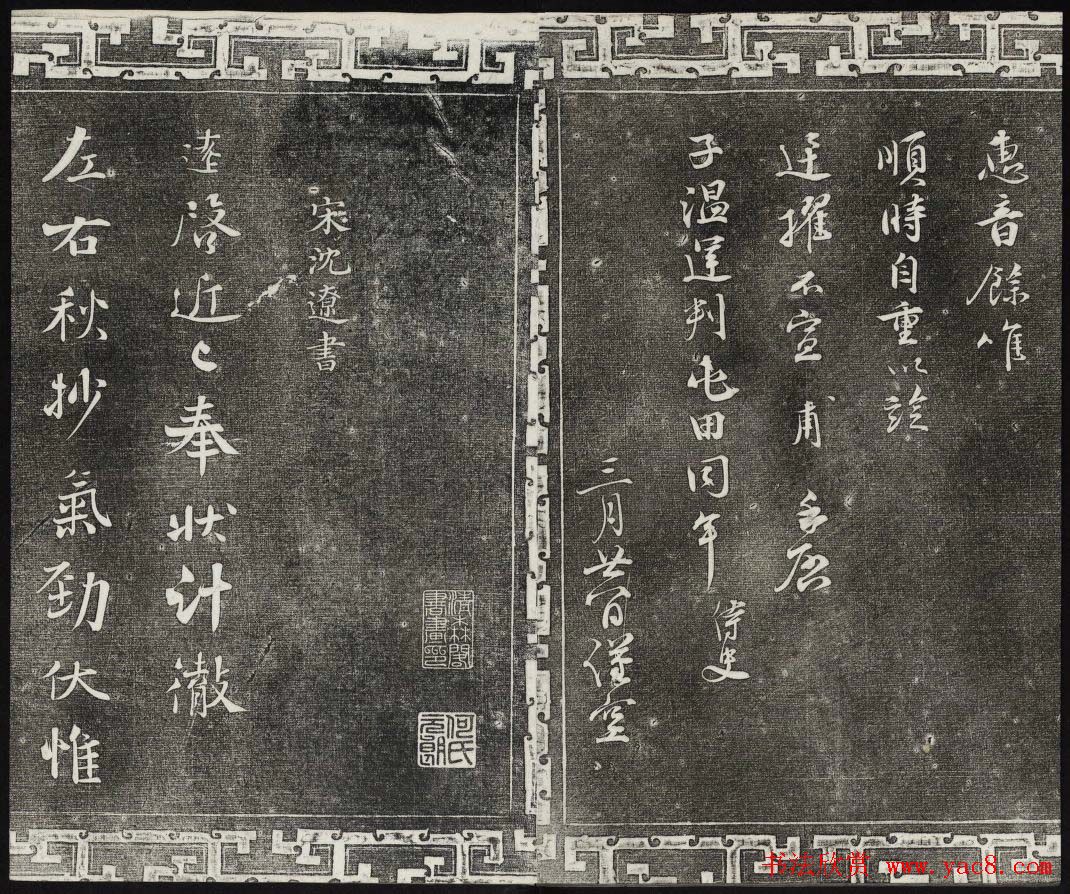 惠音餘惟
順時自重以
迁擢不宣甫
子温運判屯田同年侍史
三月廿日僅空
清森閣書畫印
何氏元朗
宋沈遼書
遼啓近々奉狀計澈
左右秋抄氣勁伏惟
书法欣赏 www.yac8.com